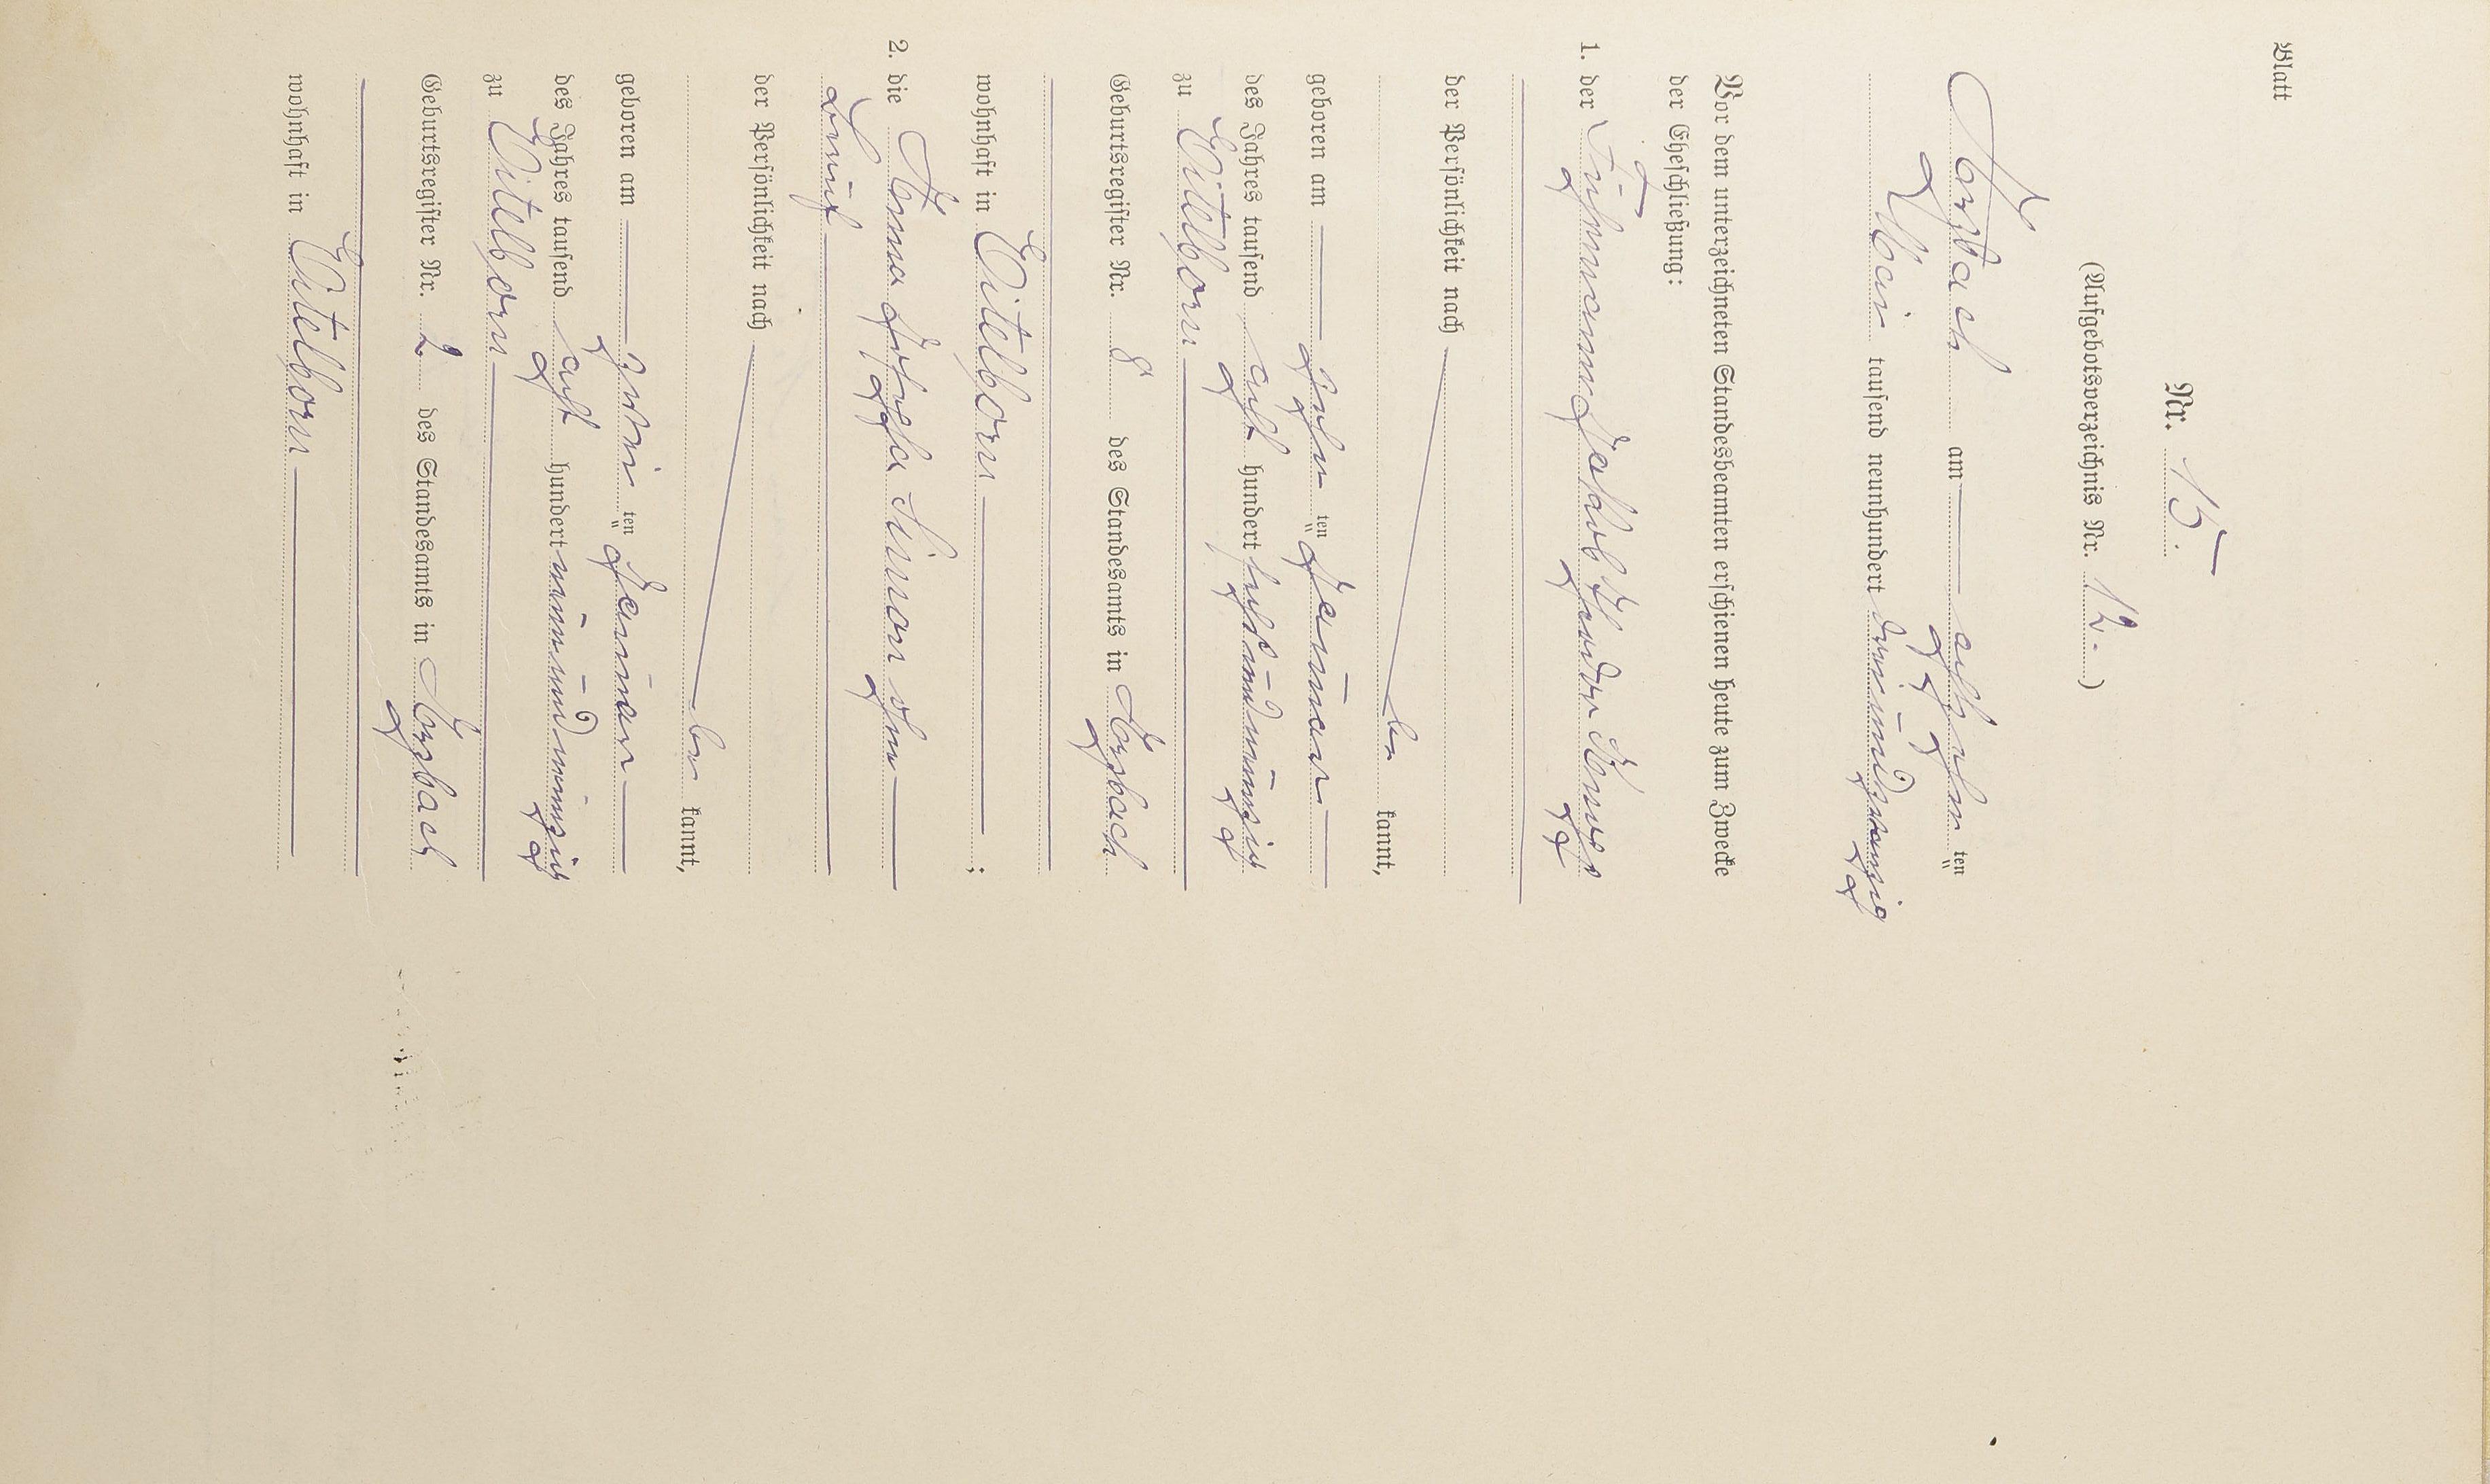 Blatt
Nr. 15.
(Aufgebotsverzeichnis Nr. 12.)
am achtzehn ten
Mai tausend neunhundert dreiundzwanzig
Vor dem unterzeichneten Standesbeamten erschienen heute zum Zwecke
der Eheschließung:
1. der Fuhrmann Jakob
der Persönlichkeit nach
be kannt,
geboren am zehn ten Januar
des Jahres tausend acht hundert sechsundneunzig
zu Eitelborn
Geburtsregister Nr. 8 des Standesamts in
wohnhaft in Eitelborn ;
2. die Anna Josepha Simon ohne
Beruf
der Persönlichkeit nach
be kannt,
geboren am zwei ten Januar
des Jahres tausend acht hundert neunundneunzig
zu Eitelborn
Geburtsregister Nr. 2 des Standesamts in
wohnhaft in Eitelborn